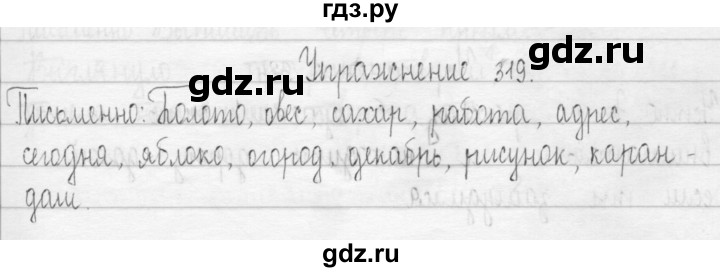 гдз.ру
Упражнение 319.
gdz.ru gdz.ru
Письменно: Болото, овес, сахар, работа, адрес,
сегодня, яблоко, огород, декабрь, рисунок, каран
даш.
gdz.ru